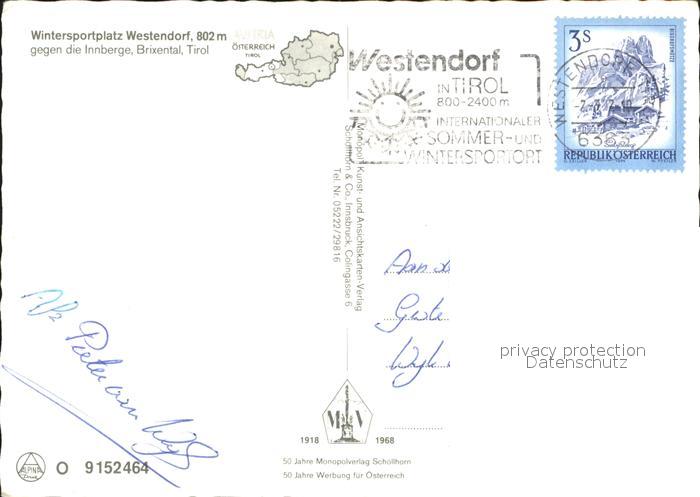 Wintersportplatz Westendorf, 802 m
gegen die Innberge, Brixental, Tirol
AUSTRIA
ÖSTERREICH
TIROL
Westendorf
IN TIROL
800-2400 m
INTERNATIONALER
SOMMER- UND
WINTERSPORTORT
WESTENDORF
6363
3S
REPUBLIK ÖSTERREICH
Monopol Kunst- und Ansichtskarten-Verlag
Schöllhorn & Co., Innsbruck, Colingasse 6
Tel. Nr. 05222/29816
Aan
privacy protection
Datenschutz
M V
1918 1968
50 Jahre Monopolverlag Schöllhorn
50 Jahre Werbung für Österreich
ALPINA
O 9152464